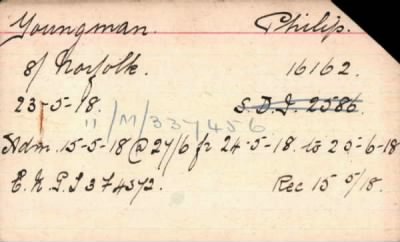 Youngman. Philip.
8/ Norfolk. 16162.
23-5-18. S.D.I. 2586.
11/M/337456
Adm. 15-5-18 @ 27/6 fr 24-5-18. to 25-6-18
Rec 15 5/18.